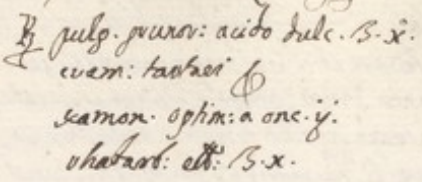 ℞ pulp. prunor: acido dulc. ℥. x.
cram: tartari
scamon. optim: a onc. ij.
rhabarb: elt: ℥. x.